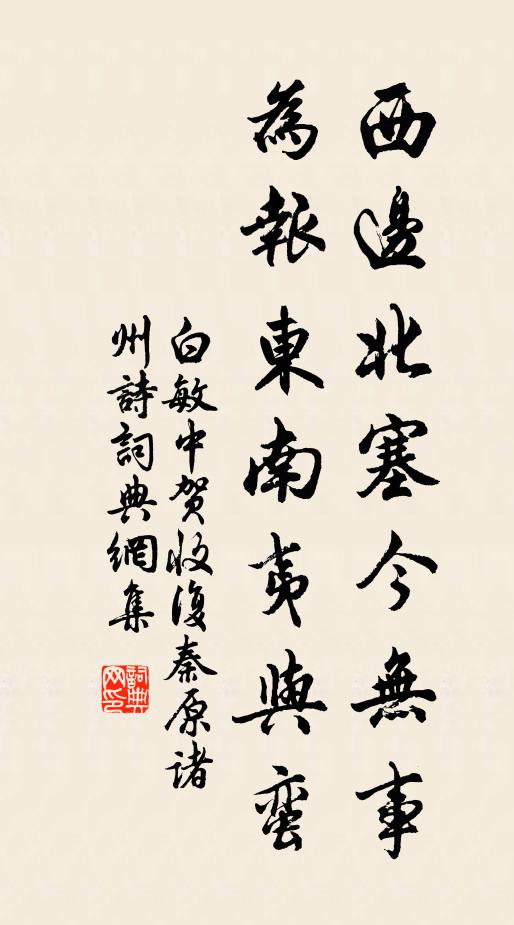 西邊北塞今無事
為報東南夷與蛮
白敏中贺收復秦原诸
州詩詞典網集
詞典
网印